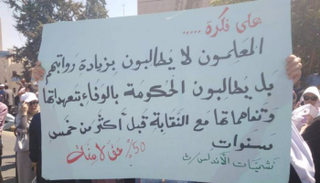 على فكرة .....
المعلمون لا يطالبون بزيادة رواتبهم
بل يطالبون الحكومة بالوفاء بتعهداتها
وتفاهماتها مع النقابة قبل أكثر من خمس
سنوات
50٪ حق لا منّة
نشميات الأندلس/ث